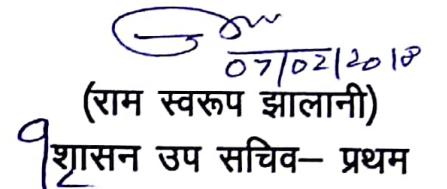 07/02/2018
(राम स्वरूप झालानी)
शासन उप सचिव– प्रथम